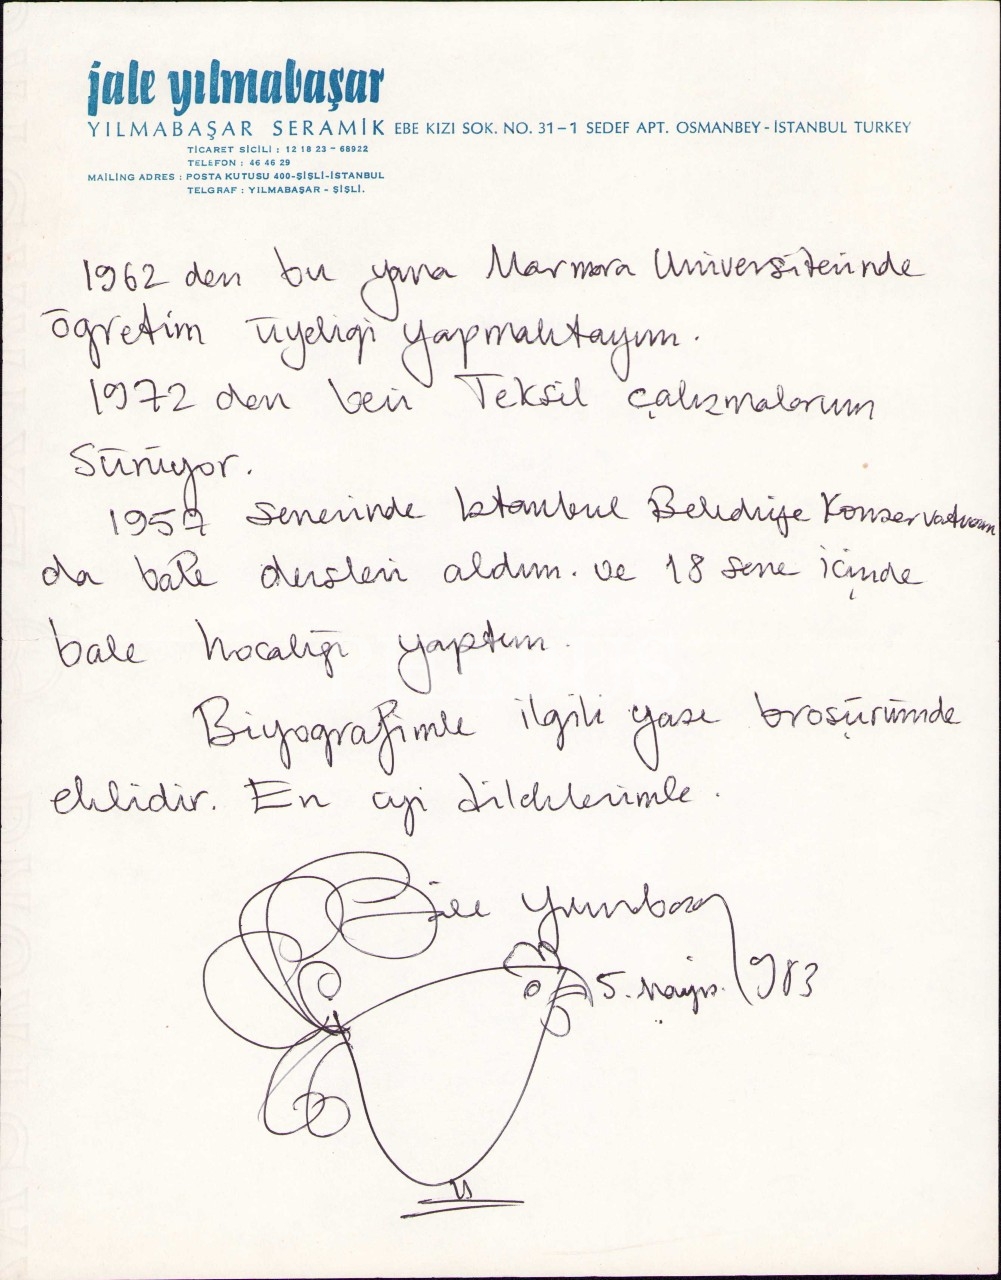 jale yılmabaşar
YILMABAŞAR SERAMİK EBE KIZI SOK. NO. 31-1 SEDEF APT. OSMANBEY - İSTANBUL TURKEY
TİCARET SİCİLİ : 12 18 23 - 68922
TELEFON : 46 46 29
MAİLİNG ADRES : POSTA KUTUSU 400-ŞİŞLİ-İSTANBUL
TELGRAF : YILMABAŞAR - ŞİŞLİ.
1962 den bu yana Marmara Üniversitesinde
öğretim üyeliği yapmaktayım.
1972 den beri Teksil çalışmalarım
Sürüyor.
1957 senesinde İstanbul Belediye Konservatuarın
da bale dersleri aldım. ve 18 sene içinde
bale hocalığı yaptım.
Biyografimle ilgili yazı broşürümde
eklidir. En iyi dileklerimle.
Jale Yılmabaşar
5. Mayıs. 1983